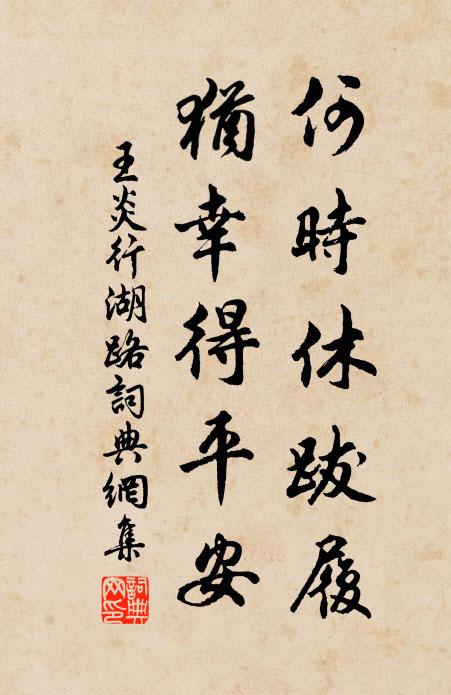 何時休跋履
猶幸得平安
王炎行湖路詞典網集
詞典網印